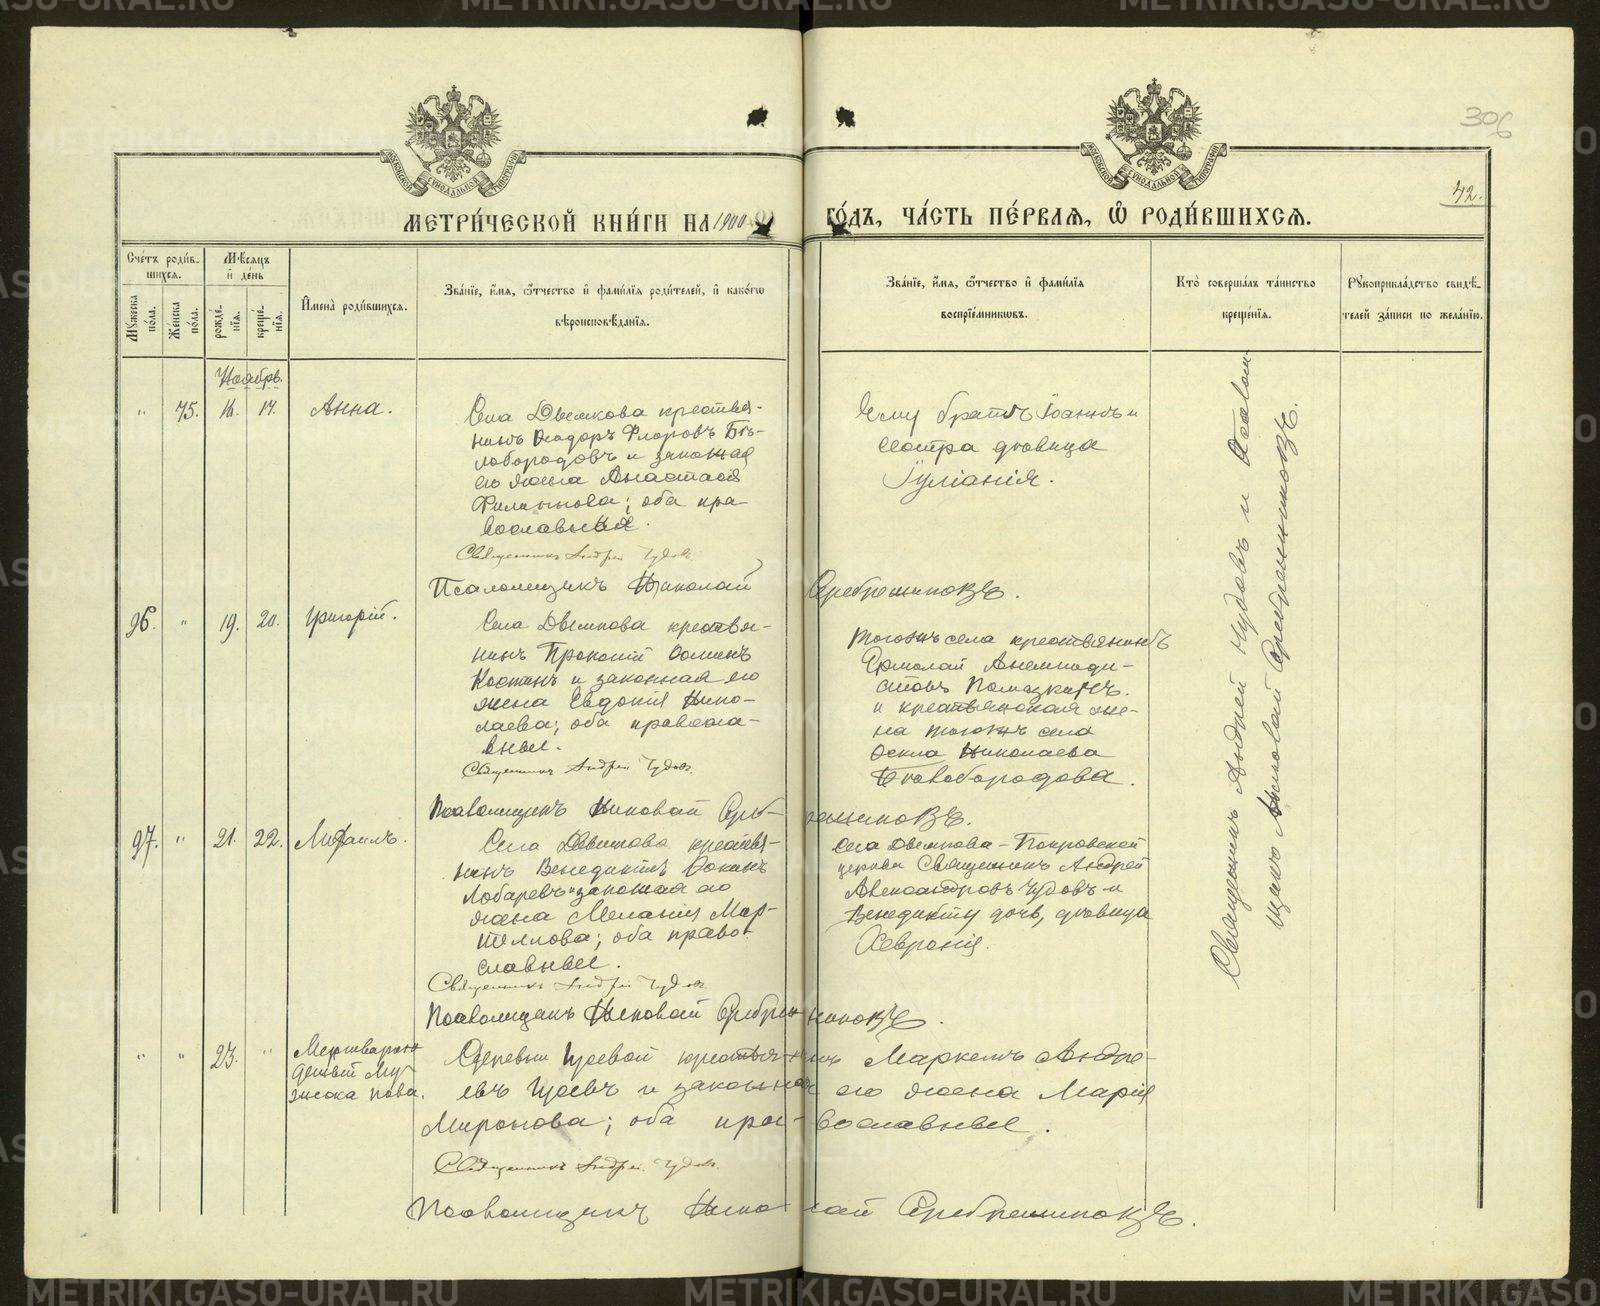 METRIKI.GASO-URAL.RU
306
42.
МОСКОВСКОЙ СѴНОДАЛЬНОЙ ТИПОГРАФІИ
МОСКОВСКОЙ СѴНОДАЛЬНОЙ ТИПОГРАФІИ
МЕТРИ́ЧЕСКОЙ КНИ́ГИ НА 1900
ГО́ДЪ, ЧА́СТЬ ПЕ́РВАЯ, Ѡ РОДИ́ВШИХСЯ.
Сче́тъ роди́в-
шихся.
Мꙋжеска пола.
Же́нска по́ла.
Мѣ́сяцъ
и де́нь
рожде́-
нїя.
креще́-
нїя.
Имена̀ роди́вшихся.
Зва́нїе, и́мя, ѻ́тчество и фами́лїя роди́телей, и како́гѡ
вѣроисповѣ́данїя.
Зва́нїе, и́мя, ѻ́тчество и фами́лїя
воспрїе́мникѡвъ.
Кто̀ соверша́лъ та́инство
креще́нїя.
Рꙋкоприкла́дство свидѣ́-
телей за́писи по жела́нїю.
Ноябрь.
" 75. 16. 17. Анна.
Села Двемкова крестья-
нинъ Ѳеодоръ Флоровъ Бѣ-
лобородовъ и законная
его жена Анастасія
Филиппова; оба пра-
вославныя.
Священникъ Андрей Чудовъ
Псаломщикъ Николай Серебрениковъ.
Ему братъ Іоаннъ и
сестра дѣвица
Іуліанія.
96. " 19. 20. Григорій.
Села Двемкова крестья-
нинъ Прокопій
Костинъ и законная его
жена Евдокія Нико-
лаева; оба правосла-
вные.
Священникъ Андрей Чудовъ.
Псаломщикъ Николай Сереб-рениковъ.
Тогожъ села крестьянинъ
Ермолай Анемподи-
стовъ Помазкинъ.
и крестьянская же-
на тогожъ села
Ѳекла Николаева
Бѣлобородова.
97. " 21. 22. Михаилъ.
Села Двемкова крестья-
нинъ Венедиктъ Ѳокинъ
Лобаревъ и законная его
жена Меланія Мар-
темпова; оба право-
славные.
Священникъ Андрей Чудовъ
Псаломщикъ Николай Серебрениковъ.
Села Двемкова-Покровской
церкви Священникъ Андрей
Александровъ Чудовъ и
Венедикту дочь, дѣвица
Хевронія.
" " 23. "
Мертворож-
денный Му-
жска пола.
Деревни Гусевой крестьянинъ Маркелъ Андре-
евъ Гусевъ и законная его жена Марія
Миронова; оба пра-вославные.
Священникъ Андрей Чудовъ
Псаломщикъ Николай Серебрениковъ.
Священникъ Андрей Чудовъ и Псалом-
щикъ Николай Серебрениковъ.